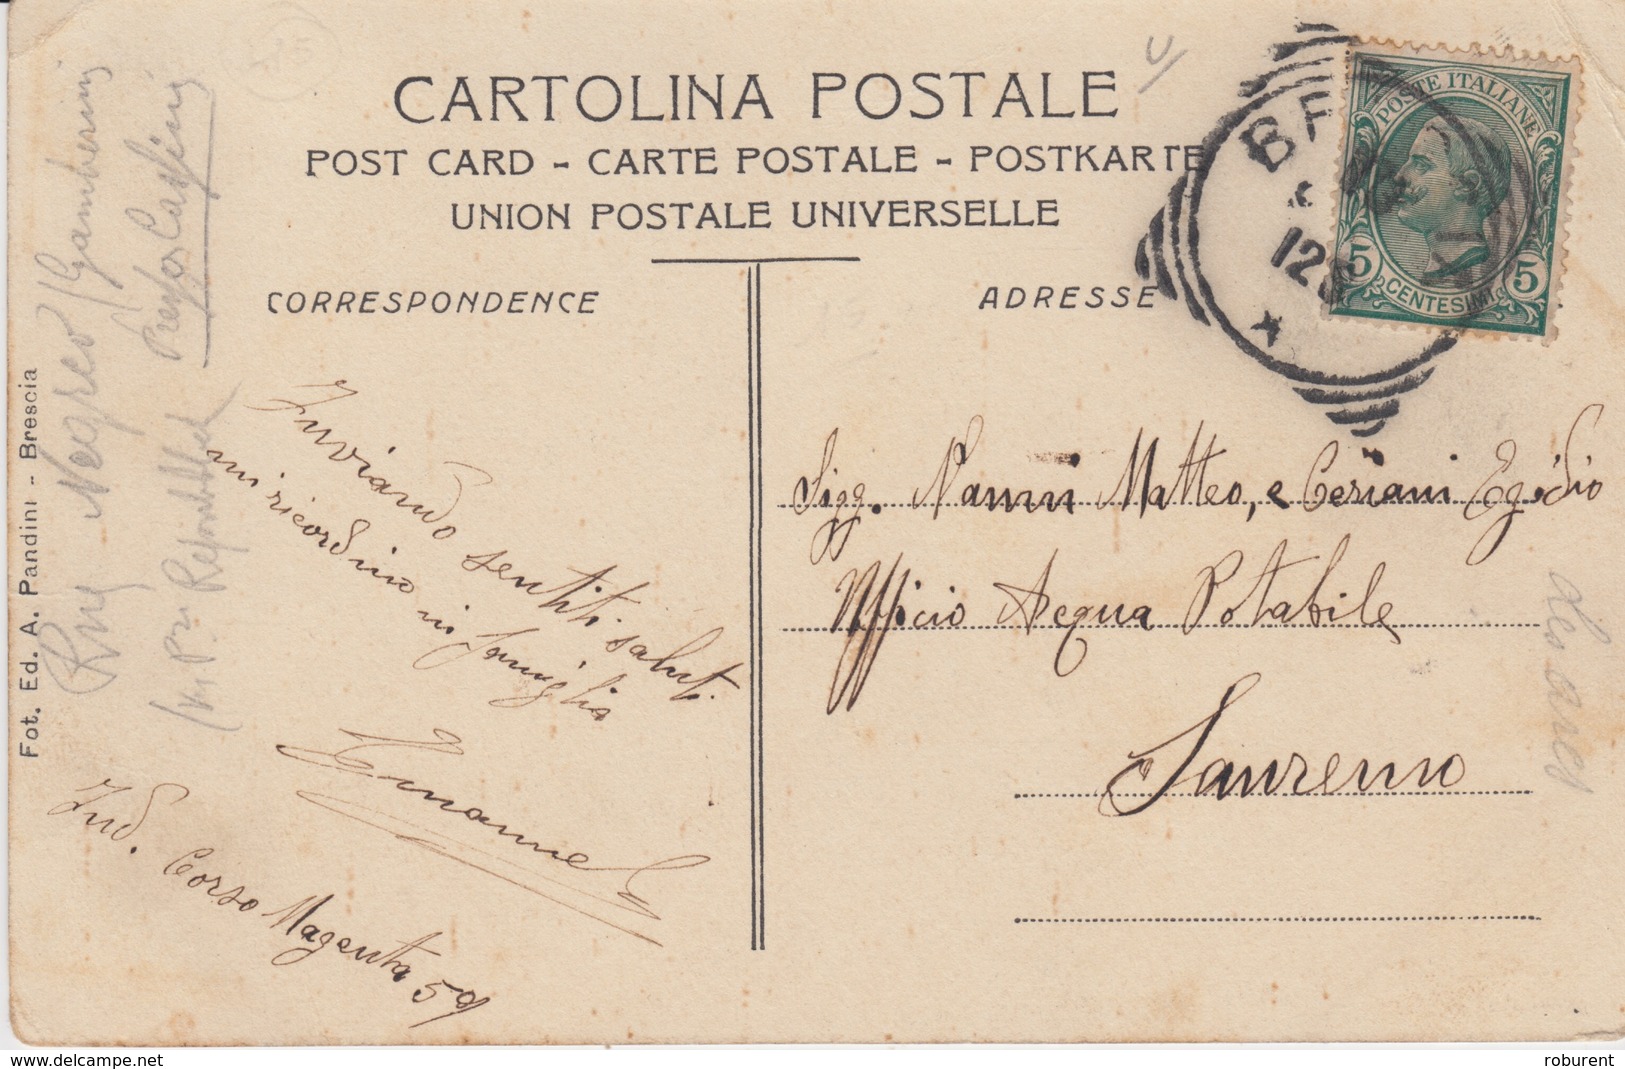 CARTOLINA POSTALE
POST CARD - CARTE POSTALE - POSTKARTE
UNION POSTALE UNIVERSELLE
CORRESPONDENCE
ADRESSE
POSTE ITALIANE
5 CENTESIMI 5
Inviando sentiti saluti
mi ricordino in famiglia
Emanuel
Ind. Corso Magenta 59
Sigg. Nanni Matteo, e Ceriani Egidio
Ufficio Acqua Potabile
Sanremo
Fot. Ed. A. Pandini - Brescia
Negreo / Gamberini
roburent
delcampe.net